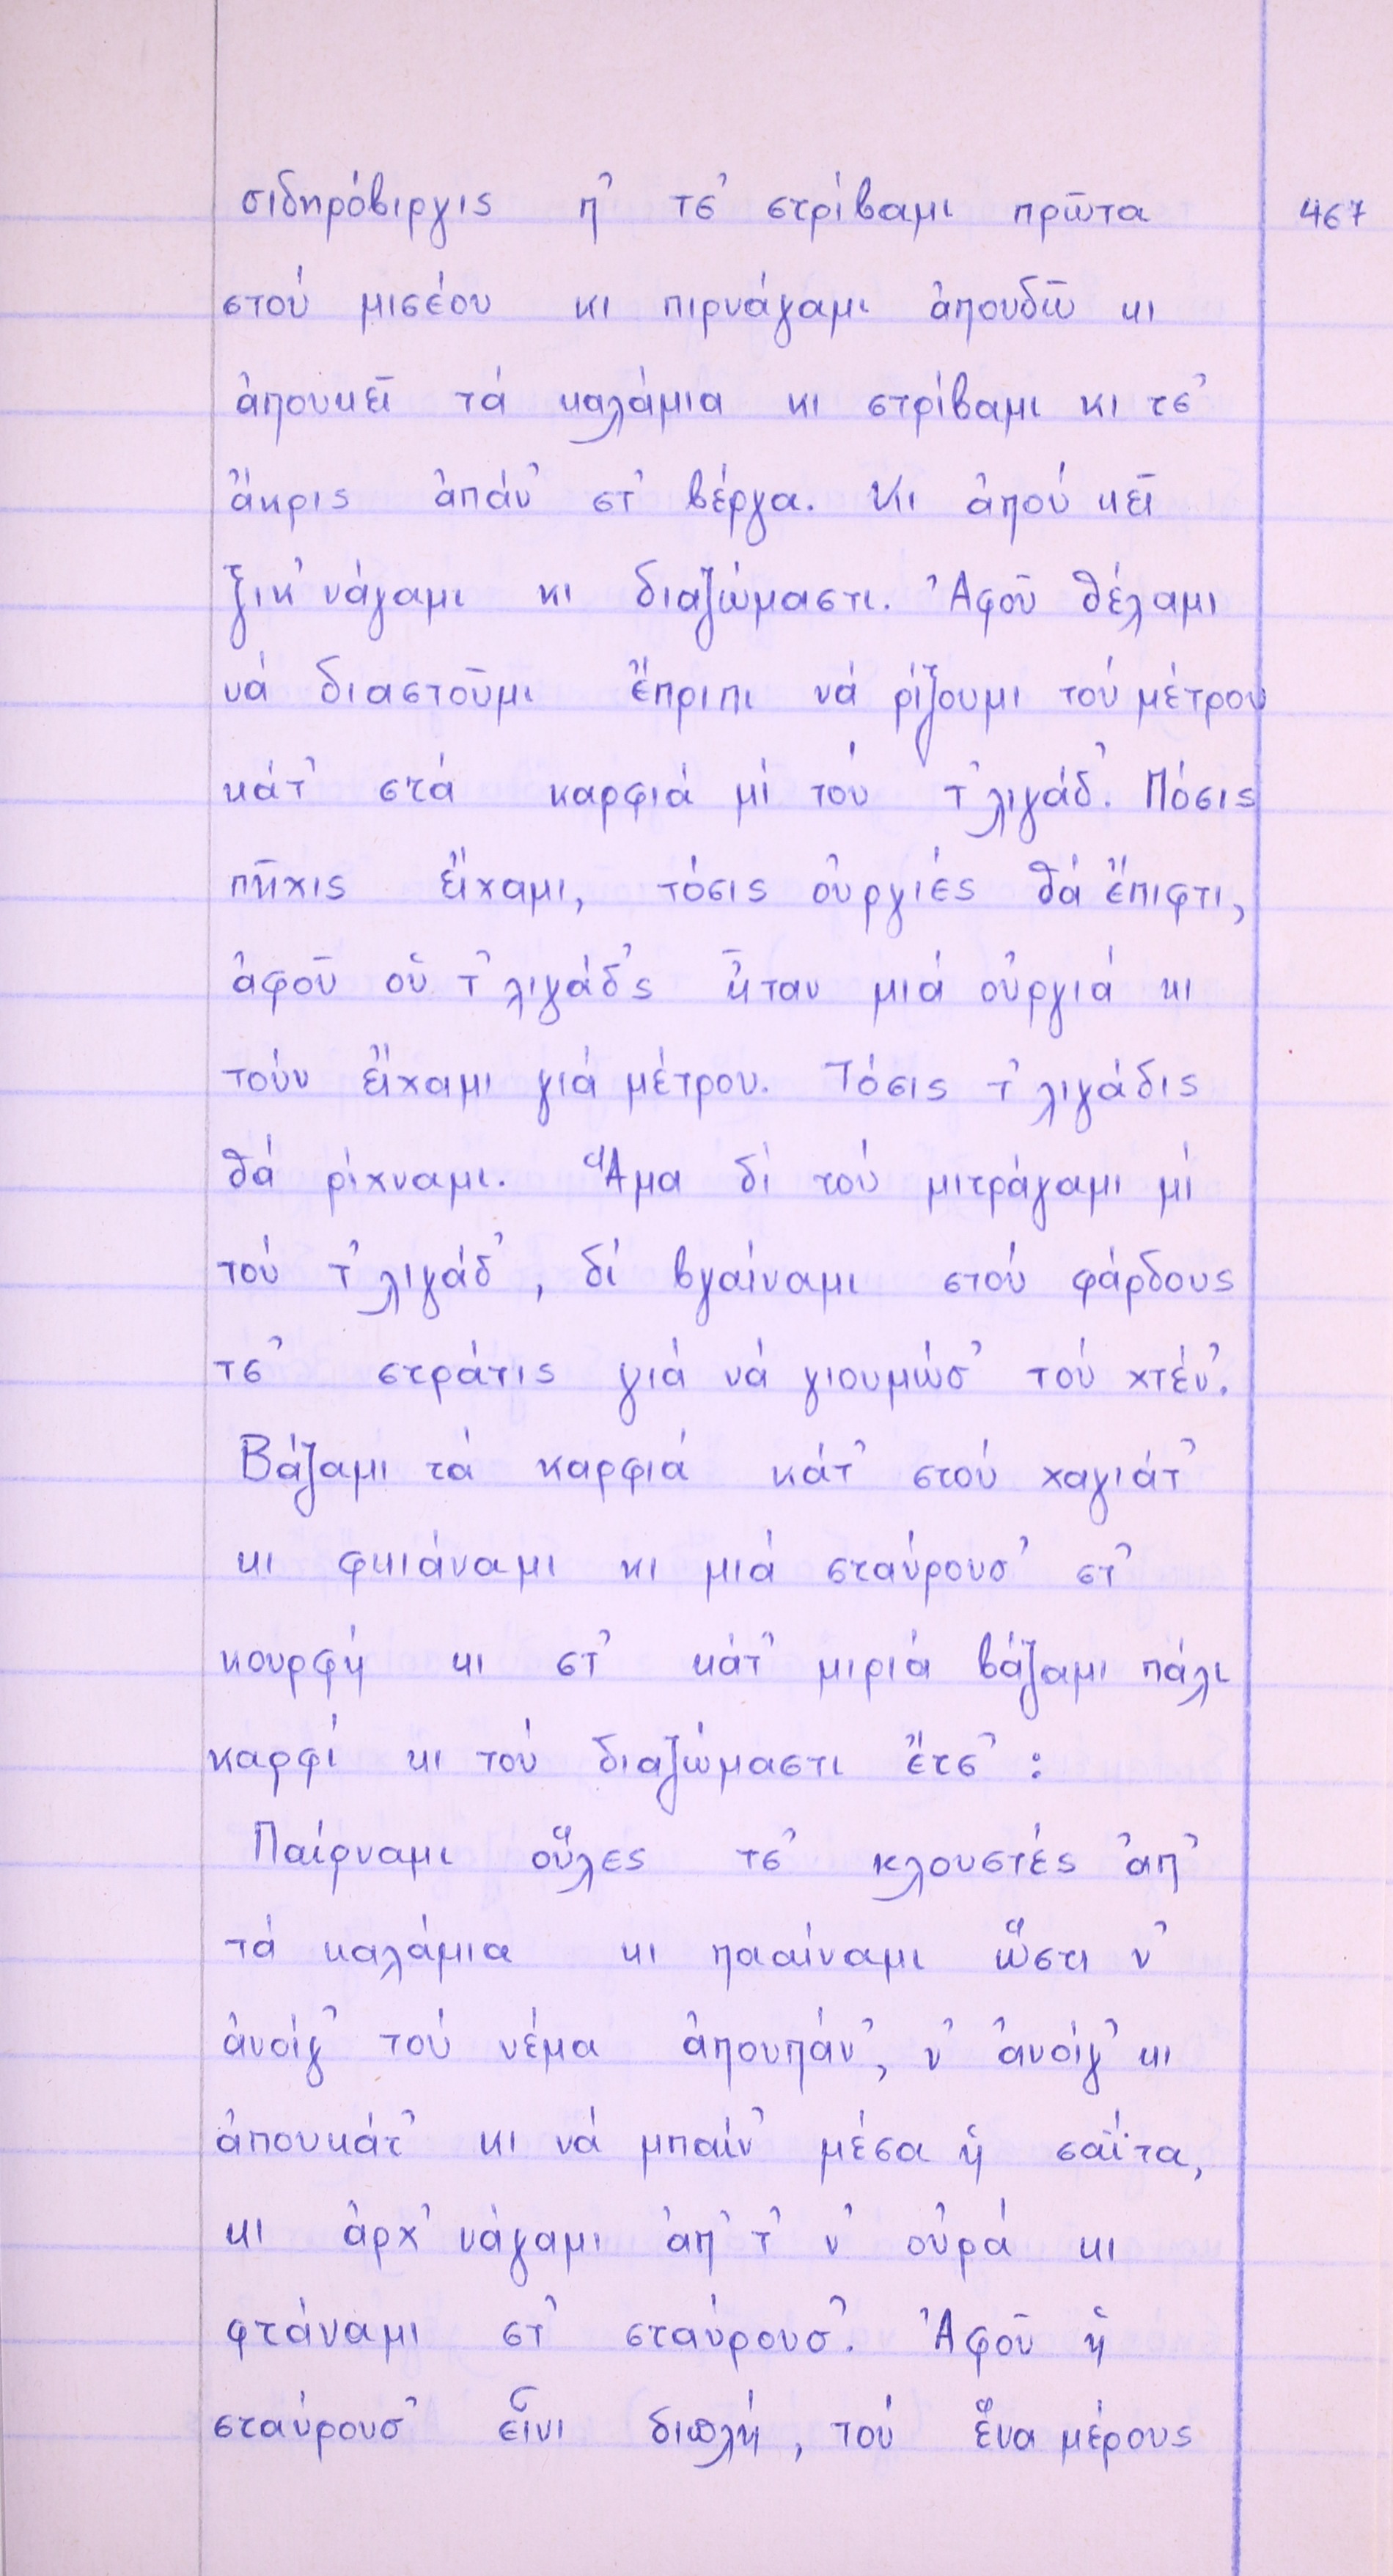 σιδηρόβιργις π' τσ' στρίβαμι πρῶτα 467
στού μισέου κι πιρνάγαμι ἀπουδῶ κι
ἀπουκεῖ τά καλάμια κι στρίβαμι κι τσ'
ἄκρις ἀπάν' στ' βέργα. Κι ἀπού κεῖ
ξικ'νάγαμι κι διαζώμαστι. Ἀφοῦ θέλαμι
νά διαστοῦμι ἔπριπι νά ρίξουμι τού μέτρου
κάτ' στά καρφιά μί τού τ'λιγάδ'. Πόσις
πῆχις εἴχαμι, τόσις οὐργιές θά ἔπιφτι,
ἀφοῦ οὑ τ'λιγάδ'ς ἦταν μιά οὐργιά κι
τούν εἴχαμι γιά μέτρου. Τόσις τ'λιγάδις
θά ρίχναμι. Ἅμα δί τού μιτράγαμι μί
τού τ'λιγάδ', δί βγαίναμι στού φάρδους
τσ' στράτις γιά νά γιουμώσ' τού χτέν'.
Βάζαμι τά καρφιά κάτ' στού χαγιάτ'
κι φκιάναμι κι μιά σταύρουσ' στ'
κουρφή κι στ' κάτ' μιριά βάζαμι πάλι
καρφί κι τού διαζώμαστι ἔτσ' :
Παίρναμι οὕλες τσ' κλουστές ἀπ'
τά καλάμια κι πααίναμι ὥστι ν'
ἀνοίγ' τού νέμα ἀπουπάν', ν' ἀνοίγ' κι
ἀπουκάτ' κι νά μπαίν' μέσα ἡ σαΐτα,
κι ἀρχ'νάγαμι ἀπ' τ' ν' οὐρά κι
φτάναμι στ' σταύρουσ'. Ἀφοῦ ἡ
σταύρουσ' εἶνι διπλή, τού ἕνα μέρους